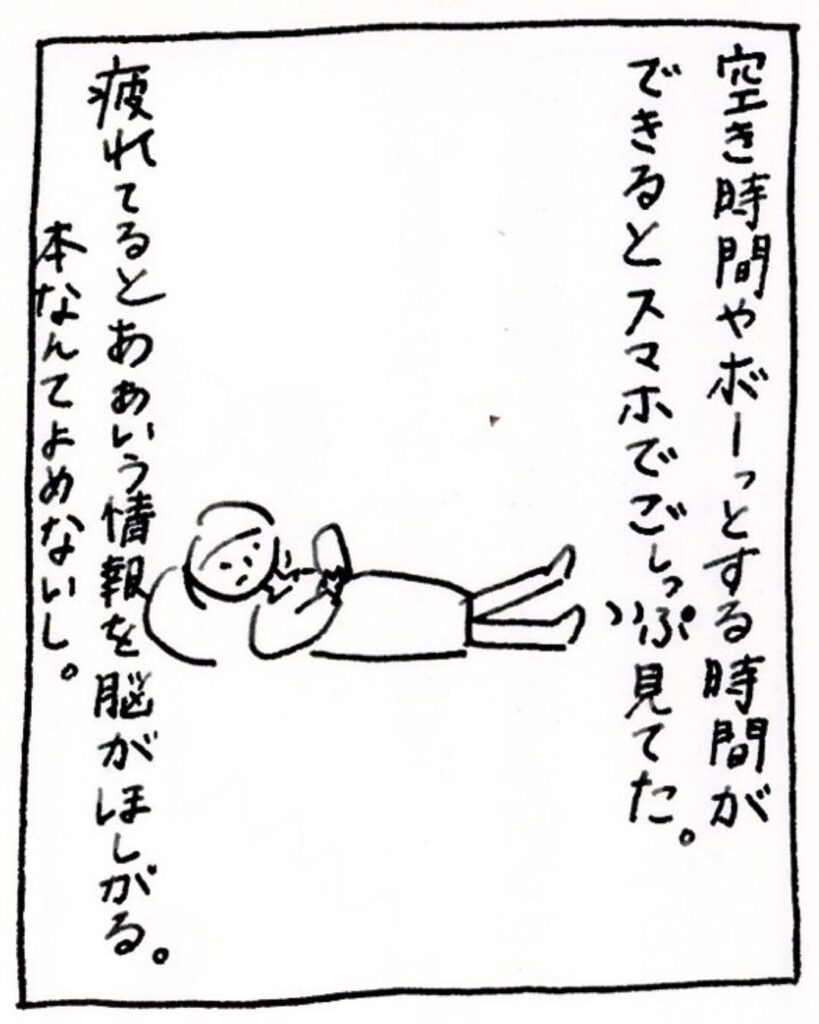 空き時間やボーっとする時間が
できるとスマホでごしっぷ見てた。
疲れてるとああいう情報を脳がほしがる。
本なんてよめないし。